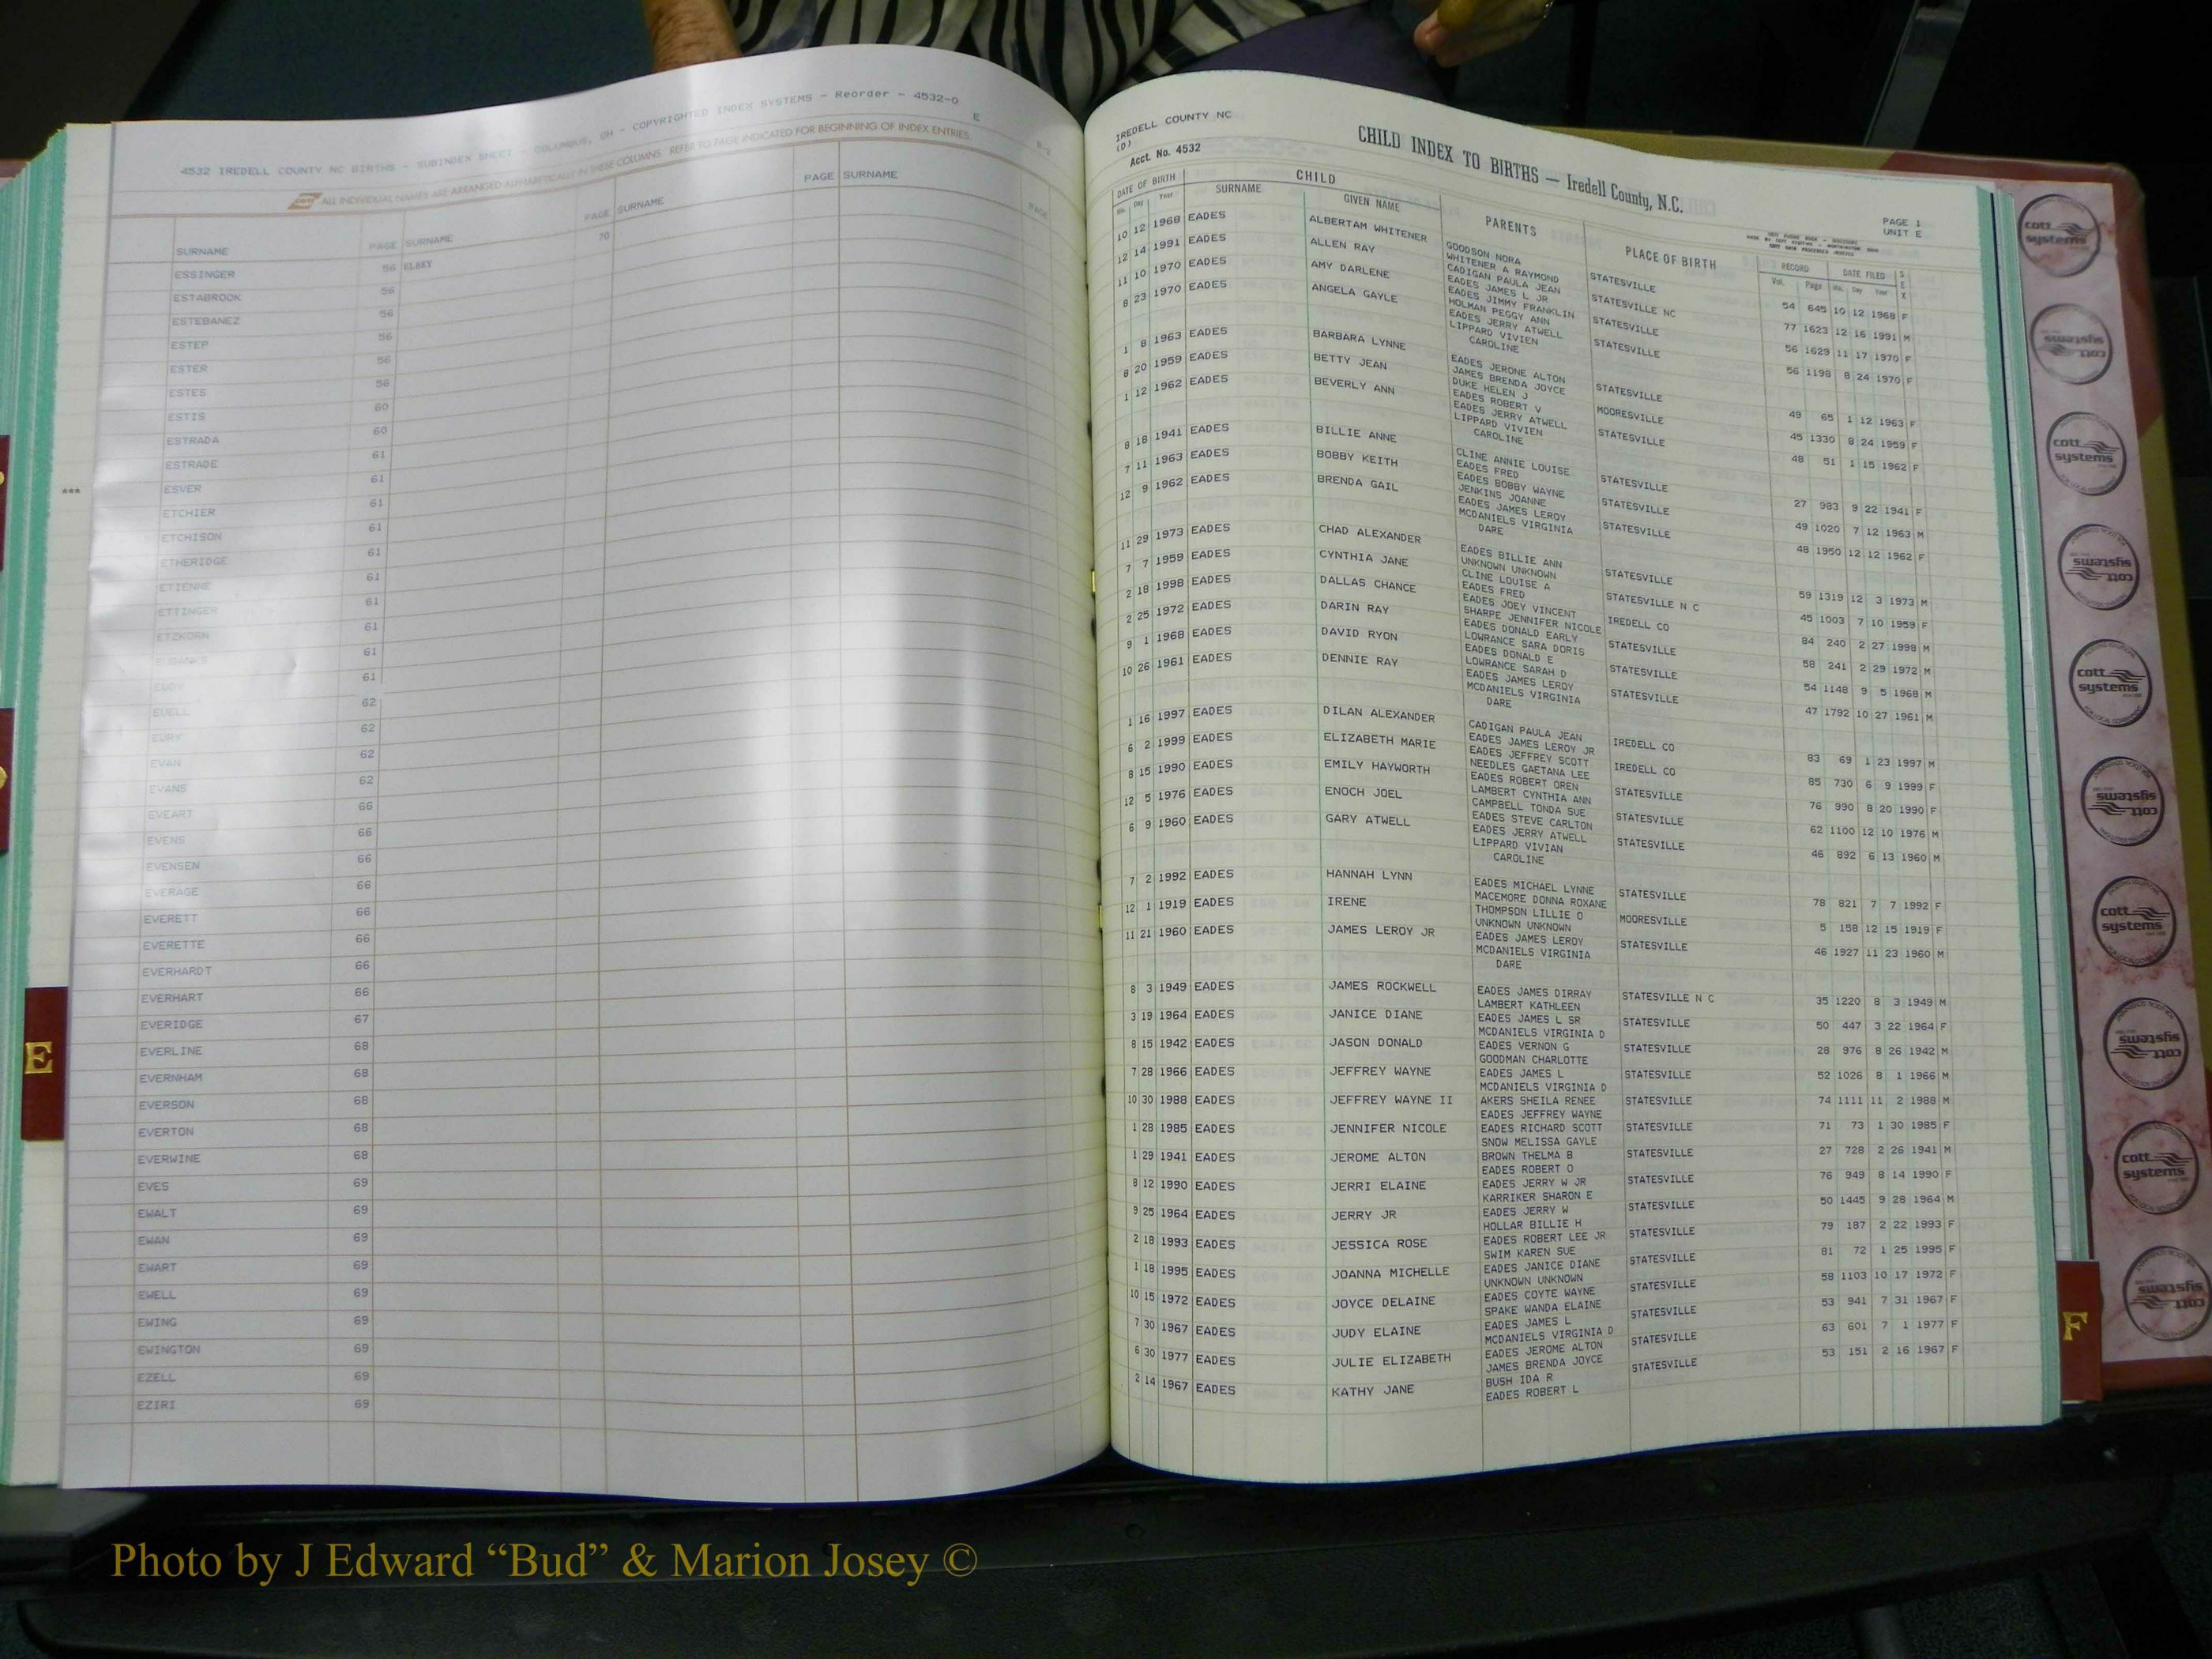 4532 IREDELL COUNTY NC BIRTHS - SUBINDEX SHEET - COLUMBUS, OH - COPYRIGHTED INDEX SYSTEMS - Reorder - 4532-0
E
ALL INDIVIDUAL NAMES ARE ARRANGED ALPHABETICALLY IN THESE COLUMNS REFER TO PAGE INDICATED FOR BEGINNING OF INDEX ENTRIES
SURNAME PAGE SURNAME PAGE SURNAME PAGE SURNAME PAGE
ESSINGER 56 ELBEY 70
ESTABROOK 56
ESTEBANEZ 56
ESTEP 56
ESTER 56
ESTES 56
ESTIS 60
ESTRADA 60
ESTRADE 61
*** ESVER 61
ETCHIER 61
ETCHISON 61
ETHERIDGE 61
ETIENNE 61
ETTINGER 61
ETZKORN 61
EUBANKS 61
EUDY 61
EUELL 62
EURY 62
EVAN 62
EVANS 62
EVEART 66
EVENS 66
EVENSEN 66
EVERAGE 66
EVERETT 66
EVERETTE 66
EVERHARDT 66
EVERHART 66
EVERIDGE 67
EVERLINE 68
EVERNHAM 68
EVERSON 68
EVERTON 68
EVERWINE 68
EVES 69
EWALT 69
EWAN 69
EWART 69
EWELL 69
EWING 69
EWINGTON 69
EZELL 69
EZIRI 69
E
IREDELL COUNTY NC
(D)
Acct. No. 4532
CHILD INDEX TO BIRTHS — Iredell County, N.C.
PAGE 1
UNIT E
DATE OF BIRTH CHILD PARENTS PLACE OF BIRTH RECORD DATE FILED SEX
Mo. Day Year SURNAME GIVEN NAME Vol. Page Mo. Day Year
10 12 1968 EADES ALBERTAM WHITENER GOODSON NORA STATESVILLE 54 645 10 12 1968 F
WHITENER A RAYMOND
12 14 1991 EADES ALLEN RAY CADIGAN PAULA JEAN STATESVILLE NC 77 1623 12 16 1991 M
EADES JAMES L JR
11 10 1970 EADES AMY DARLENE EADES JIMMY FRANKLIN STATESVILLE 56 1629 11 17 1970 F
HOLMAN PEGGY ANN
8 23 1970 EADES ANGELA GAYLE EADES JERRY ATWELL STATESVILLE 56 1198 8 24 1970 F
LIPPARD VIVIEN
CAROLINE
1 8 1963 EADES BARBARA LYNNE EADES JERONE ALTON STATESVILLE 49 65 1 12 1963 F
JAMES BRENDA JOYCE
8 20 1959 EADES BETTY JEAN DUKE HELEN J MOORESVILLE 45 1330 8 24 1959 F
EADES ROBERT V
1 12 1962 EADES BEVERLY ANN EADES JERRY ATWELL STATESVILLE 48 51 1 15 1962 F
LIPPARD VIVIEN
CAROLINE
8 18 1941 EADES BILLIE ANNE CLINE ANNIE LOUISE STATESVILLE 27 983 9 22 1941 F
EADES FRED
7 11 1963 EADES BOBBY KEITH EADES BOBBY WAYNE STATESVILLE 49 1020 7 12 1963 M
JENKINS JOANNE
12 9 1962 EADES BRENDA GAIL EADES JAMES LEROY STATESVILLE 48 1950 12 12 1962 F
MCDANIELS VIRGINIA
DARE
11 29 1973 EADES CHAD ALEXANDER EADES BILLIE ANN STATESVILLE 59 1319 12 3 1973 M
UNKNOWN UNKNOWN
7 7 1959 EADES CYNTHIA JANE CLINE LOUISE A STATESVILLE N C 45 1003 7 10 1959 F
EADES FRED
2 18 1998 EADES DALLAS CHANCE EADES JOEY VINCENT IREDELL CO 84 240 2 27 1998 M
SHARPE JENNIFER NICOLE
2 25 1972 EADES DARIN RAY EADES DONALD EARLY STATESVILLE 58 241 2 29 1972 M
LOWRANCE SARA DORIS
9 1 1968 EADES DAVID RYON EADES DONALD E STATESVILLE 54 1148 9 5 1968 M
LOWRANCE SARAH D
10 26 1961 EADES DENNIE RAY EADES JAMES LEROY STATESVILLE 47 1792 10 27 1961 M
MCDANIELS VIRGINIA
DARE
1 16 1997 EADES DILAN ALEXANDER CADIGAN PAULA JEAN IREDELL CO 83 69 1 23 1997 M
EADES JAMES LEROY JR
6 2 1999 EADES ELIZABETH MARIE EADES JEFFREY SCOTT IREDELL CO 85 730 6 9 1999 F
NEEDLES GAETANA LEE
8 15 1990 EADES EMILY HAYWORTH EADES ROBERT OREN STATESVILLE 76 990 8 20 1990 F
LAMBERT CYNTHIA ANN
12 5 1976 EADES ENOCH JOEL CAMPBELL TONDA SUE STATESVILLE 62 1100 12 10 1976 M
EADES STEVE CARLTON
6 9 1960 EADES GARY ATWELL EADES JERRY ATWELL STATESVILLE 46 892 6 13 1960 M
LIPPARD VIVIAN
CAROLINE
7 2 1992 EADES HANNAH LYNN EADES MICHAEL LYNNE STATESVILLE 78 821 7 7 1992 F
MACEMORE DONNA ROXANE
12 1 1919 EADES IRENE THOMPSON LILLIE O MOORESVILLE 5 158 12 15 1919 F
UNKNOWN UNKNOWN
11 21 1960 EADES JAMES LEROY JR EADES JAMES LEROY STATESVILLE 46 1927 11 23 1960 M
MCDANIELS VIRGINIA
DARE
8 3 1949 EADES JAMES ROCKWELL EADES JAMES DIRRAY STATESVILLE N C 35 1220 8 3 1949 M
LAMBERT KATHLEEN
3 19 1964 EADES JANICE DIANE EADES JAMES L SR STATESVILLE 50 447 3 22 1964 F
MCDANIELS VIRGINIA D
8 15 1942 EADES JASON DONALD EADES VERNON G STATESVILLE 28 976 8 26 1942 M
GOODMAN CHARLOTTE
7 28 1966 EADES JEFFREY WAYNE EADES JAMES L STATESVILLE 52 1026 8 1 1966 M
MCDANIELS VIRGINIA D
10 30 1988 EADES JEFFREY WAYNE II AKERS SHEILA RENEE STATESVILLE 74 1111 11 2 1988 M
EADES JEFFREY WAYNE
1 28 1985 EADES JENNIFER NICOLE EADES RICHARD SCOTT STATESVILLE 71 73 1 30 1985 F
SNOW MELISSA GAYLE
1 29 1941 EADES JEROME ALTON BROWN THELMA B STATESVILLE 27 728 2 26 1941 M
EADES ROBERT O
8 12 1990 EADES JERRI ELAINE EADES JERRY W JR STATESVILLE 76 949 8 14 1990 F
KARRIKER SHARON E
9 25 1964 EADES JERRY JR EADES JERRY W STATESVILLE 50 1445 9 28 1964 M
HOLLAR BILLIE H
2 18 1993 EADES JESSICA ROSE EADES ROBERT LEE JR STATESVILLE 79 187 2 22 1993 F
SWIM KAREN SUE
1 18 1995 EADES JOANNA MICHELLE EADES JANICE DIANE STATESVILLE 81 72 1 25 1995 F
UNKNOWN UNKNOWN
10 15 1972 EADES JOYCE DELAINE EADES COYTE WAYNE STATESVILLE 58 1103 10 17 1972 F
SPAKE WANDA ELAINE
7 30 1967 EADES JUDY ELAINE EADES JAMES L STATESVILLE 53 941 7 31 1967 F
MCDANIELS VIRGINIA D
6 30 1977 EADES JULIE ELIZABETH EADES JEROME ALTON STATESVILLE 63 601 7 1 1977 F
JAMES BRENDA JOYCE
2 14 1967 EADES KATHY JANE BUSH IDA R STATESVILLE 53 151 2 16 1967 F
EADES ROBERT L
F
cott systems
cott systems
cott systems
cott systems
cott systems
cott systems
cott systems
cott systems
cott systems
cott systems
Photo by J Edward “Bud” & Marion Josey ©